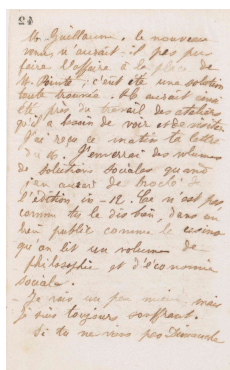 24
M. Guillaume, le nouveau
venu n'aurait-il pas pu
faire l'affaire à la place de
M. Pointe, c'eût été une solution
toute trouvée. Il aurait ainsi
été près du travail des ateliers
qu'il a besoin de voir et de visiter
J'ai reçu ce matin ta lettre
du 10. J'enverrai des volumes
de Solutions sociales quand
j'en aurai de broché de
l'édition in-12. Ce n'est pas
comme tu le dis bien, dans un
lieu public comme le casino
qu'on lit un volume de
philosophie et d'économie
sociale.
Je vais un peu mieux, mais
je suis toujours souffrant.
Si tu ne viens pas Dimanche